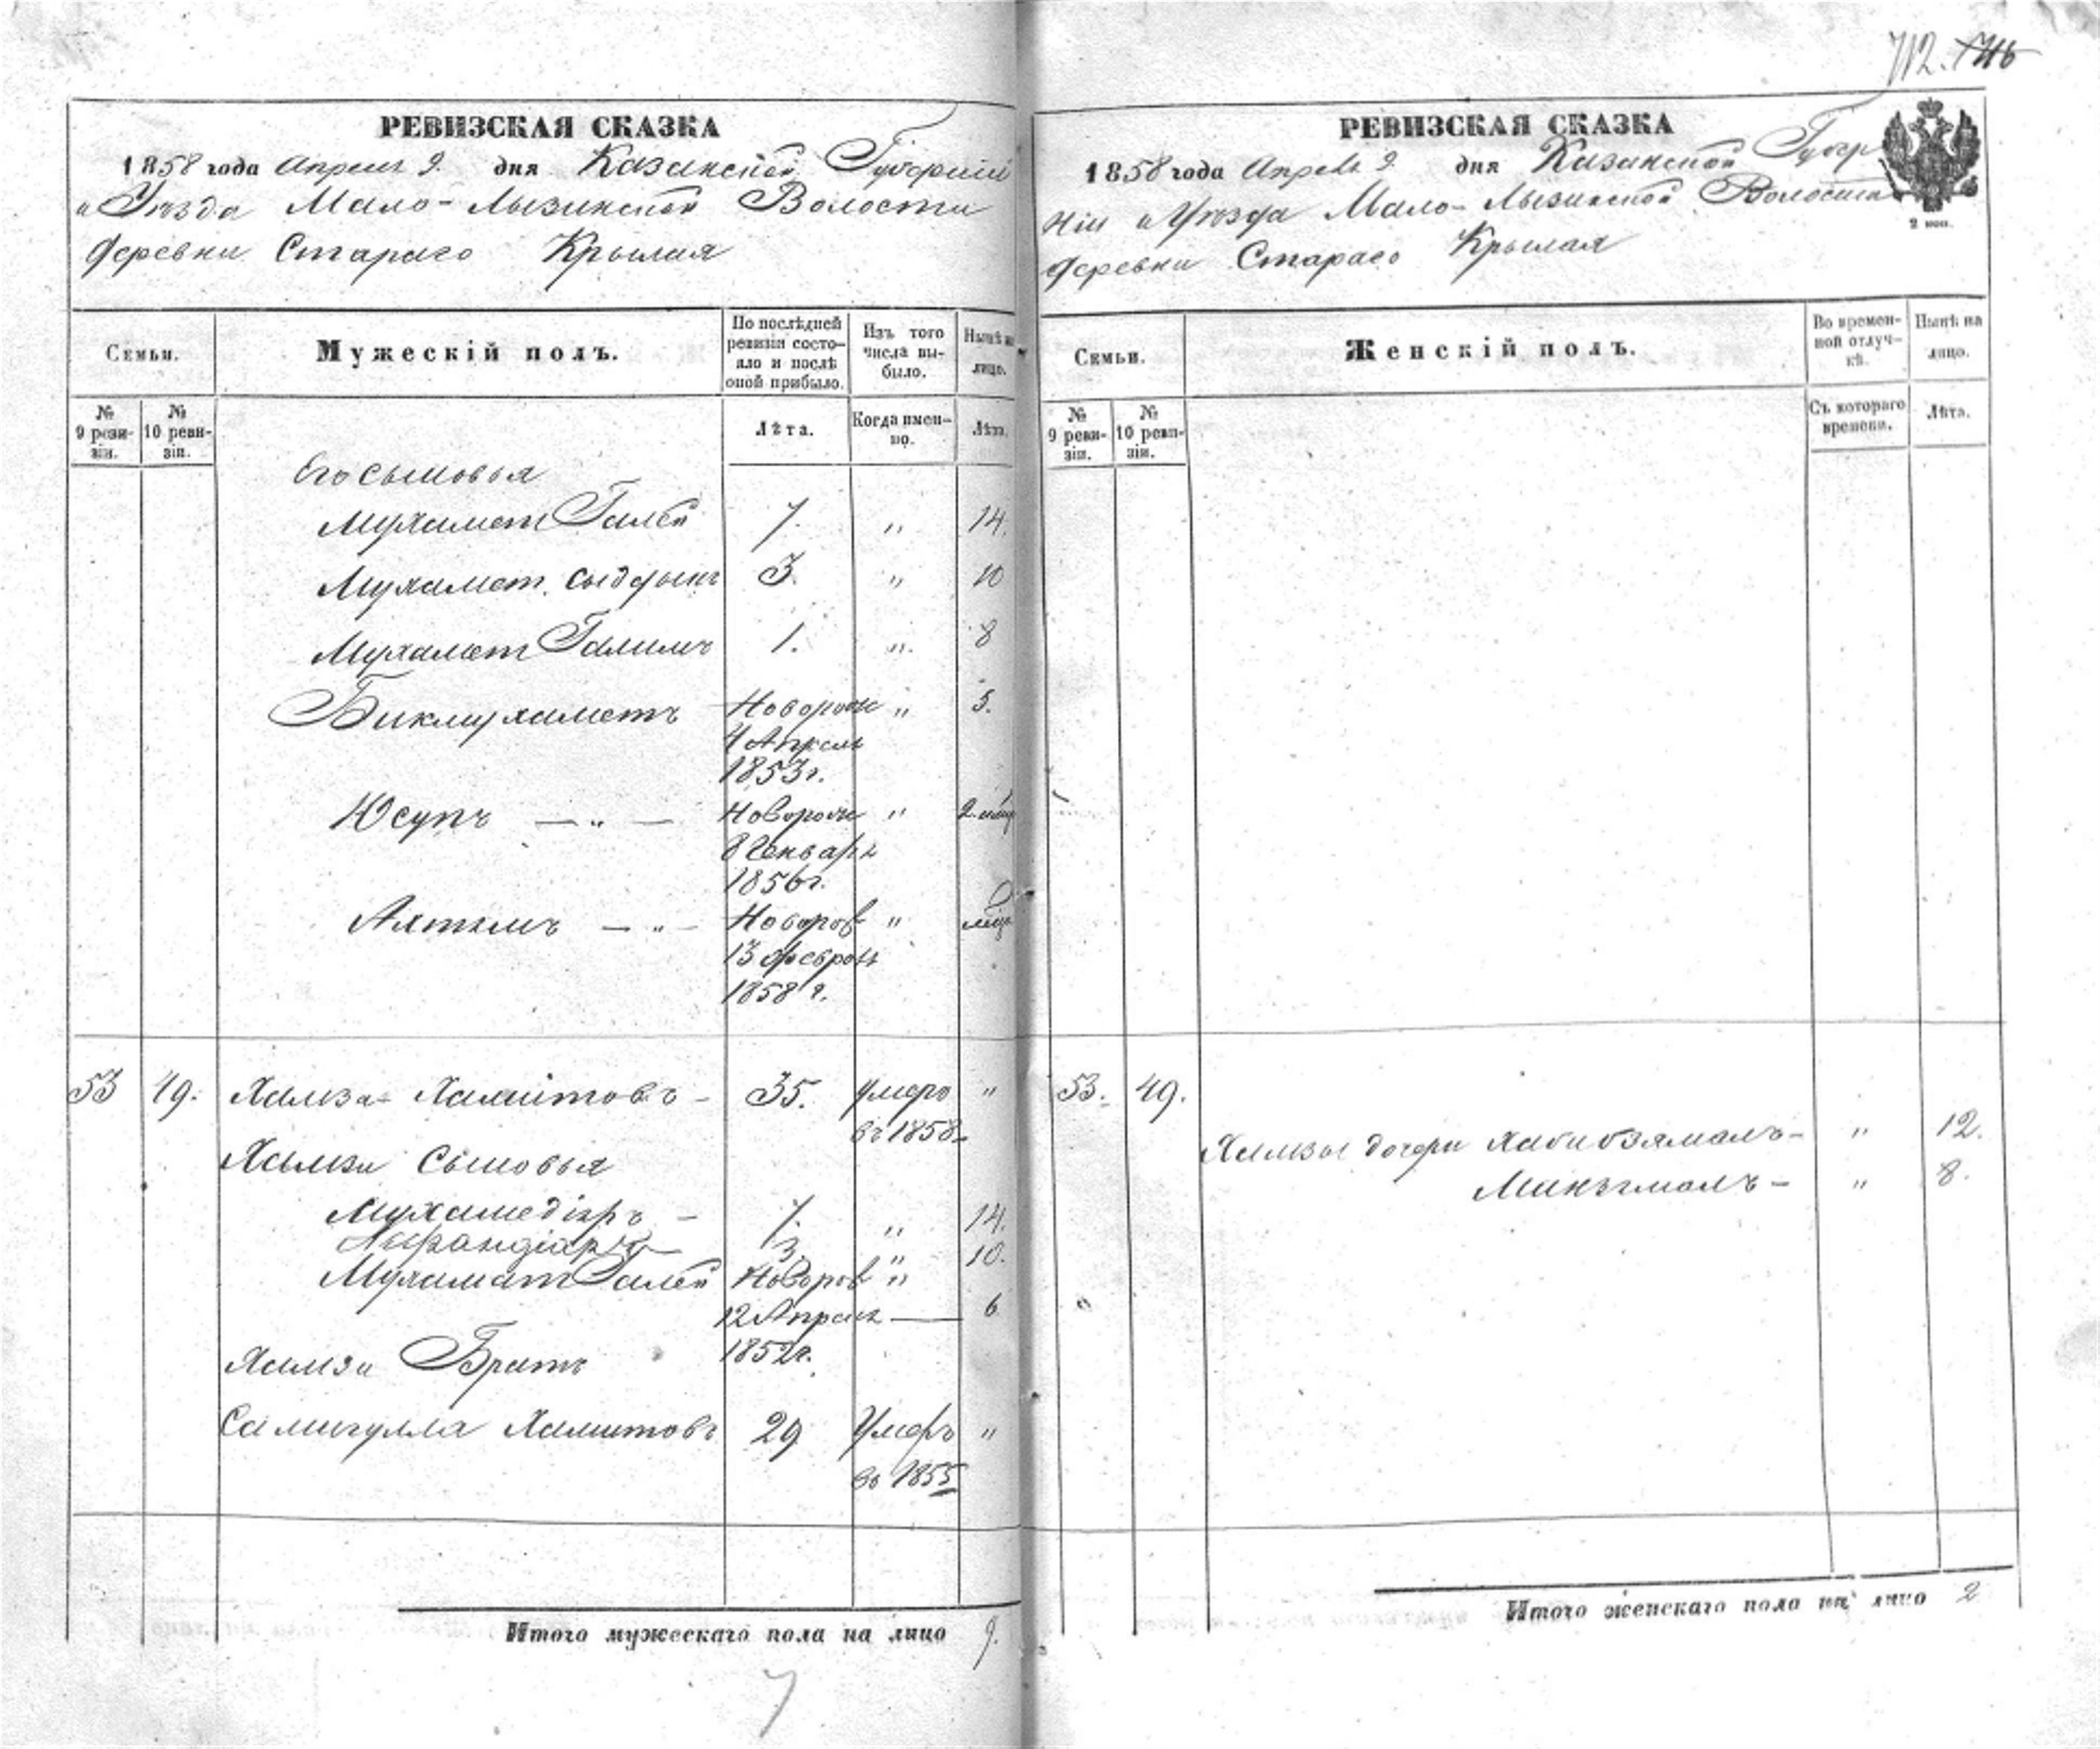 712.
РЕВИЗСКАЯ СКАЗКА
1858 года Апреля 9. дня Казанской Губернии
и Уезда Мало-Лызинской Волости
деревни Стараго Крылая
Семьи.
Мужескій полъ.
По послѣдней ревизіи состояло и послѣ оной прибыло.
Изъ того числа выбыло.
Нынѣ на лицо.
№ 9 ревизіи.
№ 10 ревизіи.
Лѣта.
Когда именно.
Лѣта.
Его сыновья
Мухамет Галей 7. " 14.
Мухамет 3. " 10
Мухамет Галимъ 1. " 8
Бикмухаметъ Новорож " 5.
4 Апреля
1853 г.
Юсупъ — " — Новорож "
8 Генваря
1856 г.
— " — Новорож "
13 Февраля
1858 г.
53 49. Хамза Хамитовъ - 35. умеръ "
въ 1858
Хамзи Сыновья
14.
3. " 10.
Мухамат Галей Новорож "
12 Апреля — 6
1852 г.
Хамзи Братъ
Самигулла Хамитовъ 29 Умеръ "
въ 1855
Итого мужескаго пола на лицо 9.
7
РЕВИЗСКАЯ СКАЗКА
1858 года Апреля 9. дня Казанской Губер
ніи и Уезда Мало-Лызинской Волости
деревни Стараго Крылая
2 коп.
Семьи.
Женскій полъ.
Во временной отлучкѣ.
Нынѣ на лицо.
№ 9 ревизіи.
№ 10 ревизіи.
Съ котораго времени.
Лѣта.
53. 49.
Хамзы дочери Хабибзямалъ - " 12.
" 8.
Итого женскаго пола на лицо 2